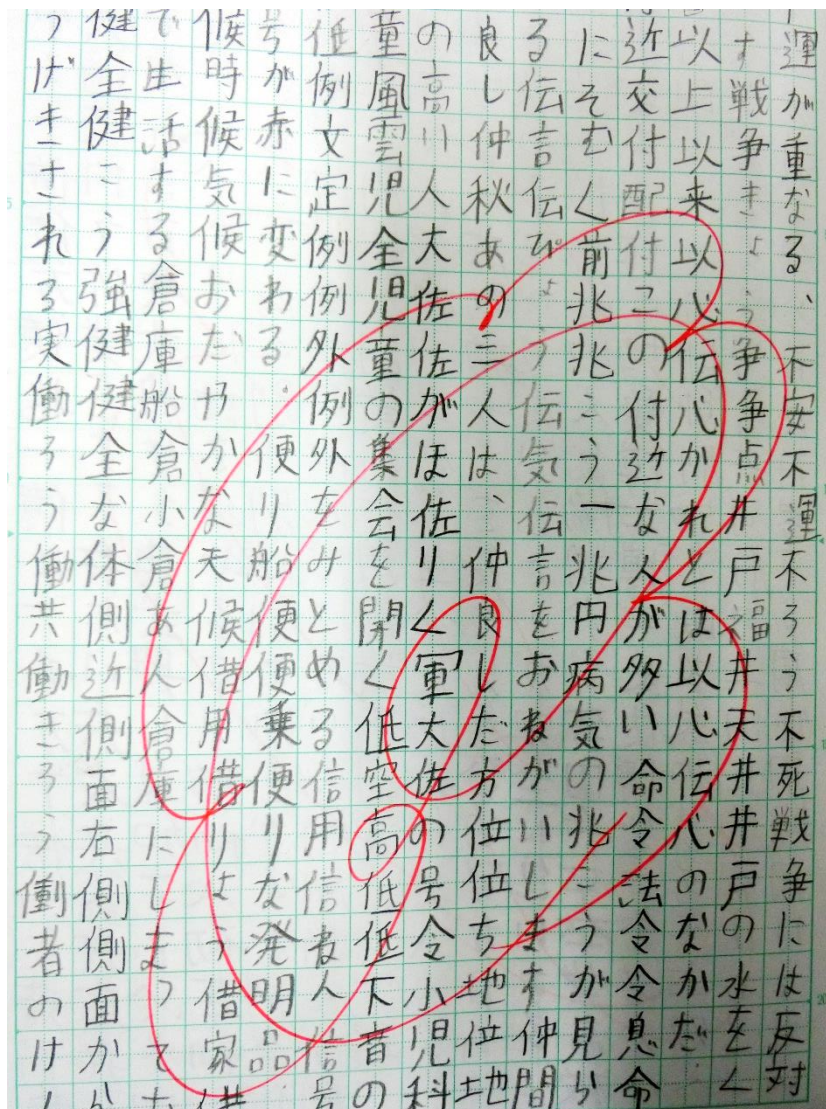 不運が重なる、不安不運不ろう不死戦争には反対
す戦争きょう争争点井戸福井天井井戸の水をく
以上以来以心伝心かれとは以心伝心のなかだ
近交付配付この付近な人が多い命令法令令息命
にそむく前兆兆こう一兆円病気の兆こうが見ら
る伝言伝ぴょう伝気伝言をおねがいします仲間
良し仲秋あの三人は、仲良しだ方位位ち地位地
の高い人大佐佐がほ佐りく軍大佐の号令小児科
童風雲児全児童の集会を開く低空高低低下音の
低例文定例例外例外をみとめる信用信ね人信号
号が赤に変わる。便り船便便乗便りな発明品
候時候気候おだやかな天候借用借りよう借家借
で生活する倉庫船倉小倉あ人倉庫にしまっとな
健全健こう強健健全な体側近側面右側側面から
うげきされる実働ろう働共働きろう働者のけん